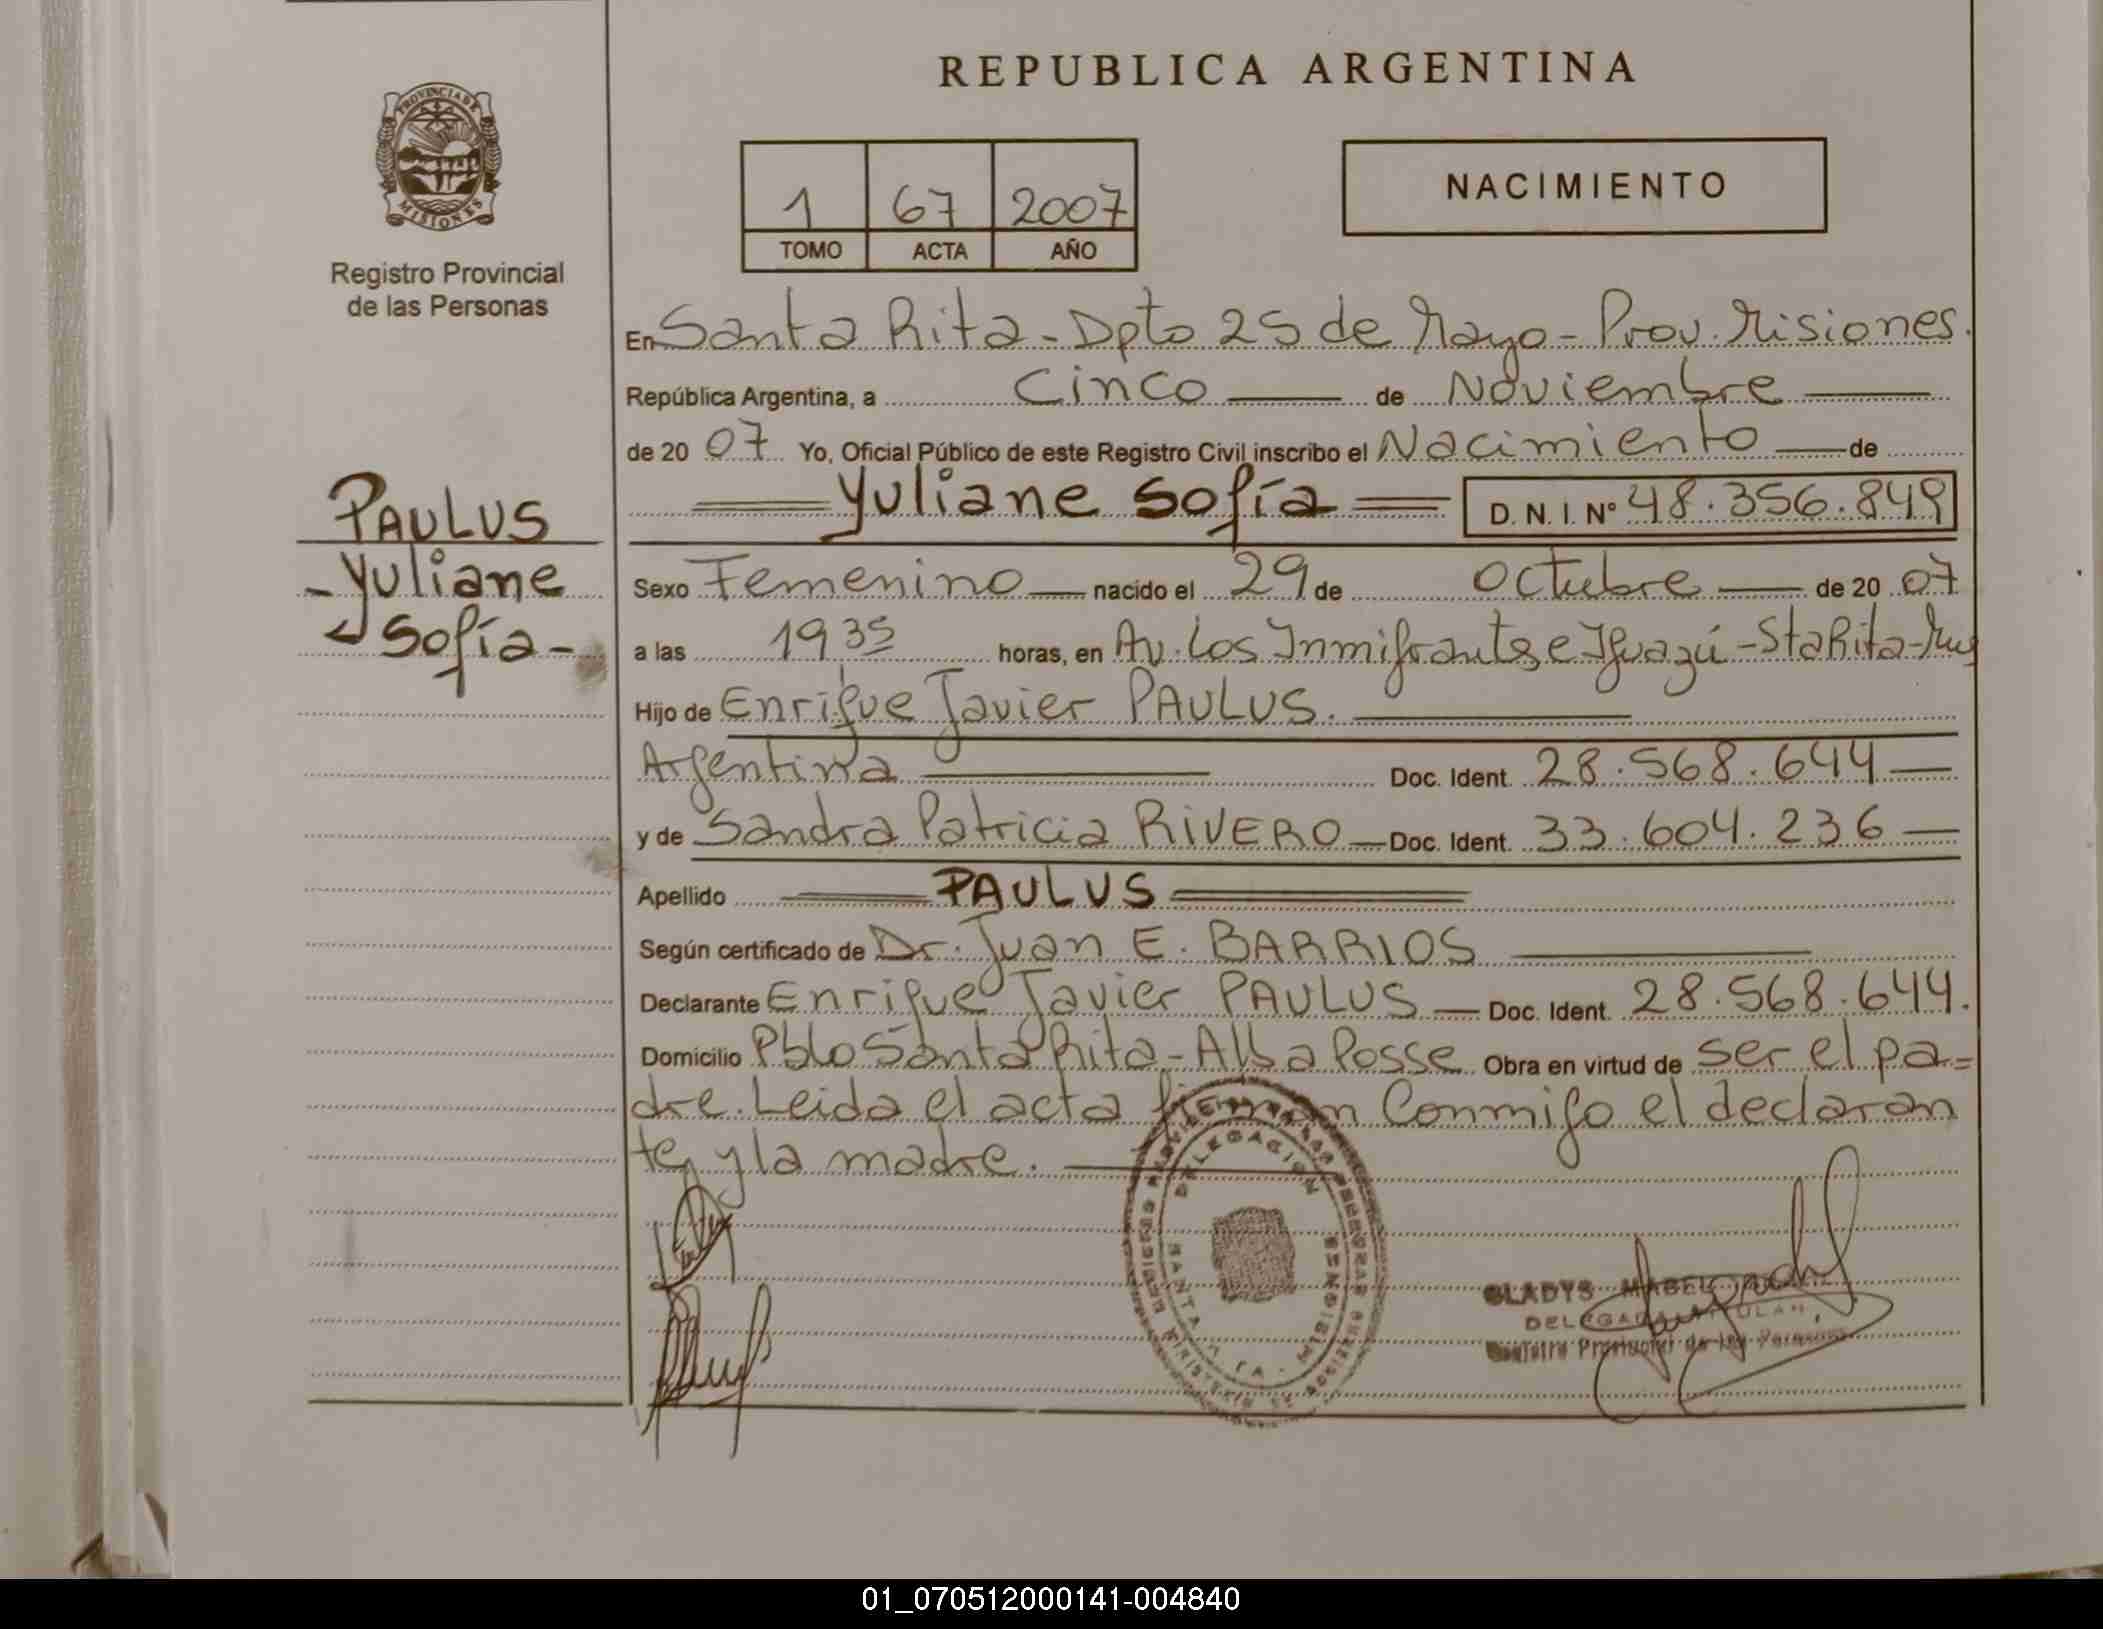 REPUBLICA ARGENTINA
PROVINCIA DE
MISIONES
Registro Provincial
de las Personas
1 67 2007
TOMO ACTA AÑO
NACIMIENTO
En Santa Rita - Dpto 25 de Mayo - Prov. Misiones.
República Argentina, a Cinco de Noviembre
de 20 07 Yo, Oficial Público de este Registro Civil inscribo el Nacimiento de
Yuliane Sofía D. N. I. N° 48.356.849
PAULUS
- Yuliane
Sofía -
Sexo Femenino nacido el 29 de Octubre de 20 07
a las 19 35 horas, en Av. Los Inmigrantes e Iguazú - Sta Rita -
Hijo de Enrique Javier PAULUS.
Argentina Doc. Ident. 28.568.644
y de Sandra Patricia RIVERO Doc. Ident. 33.604.236
Apellido PAULUS
Según certificado de Dr. Juan E. BARRIOS
Declarante Enrique Javier PAULUS Doc. Ident. 28.568.644.
Domicilio Pblo Santa Rita - Alba Posse Obra en virtud de ser el pa=
dre. Leida el acta firman Conmigo el declaran
te y la madre.
DELEGACION
SANTA RITA - MISIONES
GLADYS MABEL
DELEGADA TITULAR
Registro Provincial de las Personas
01_070512000141-004840